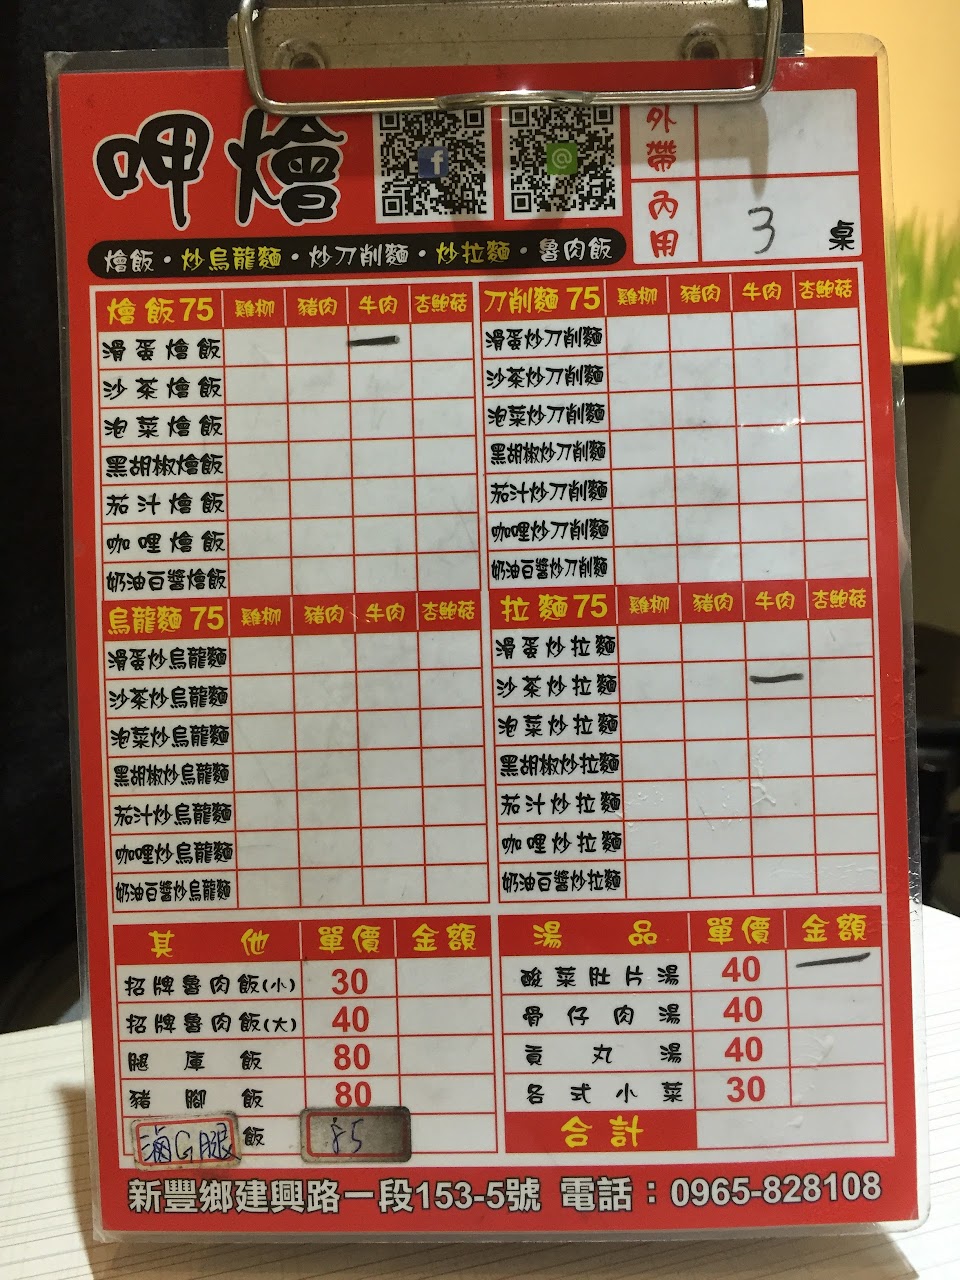 呷燴
外帶
內用 3 桌
燴飯・炒烏龍麵・炒刀削麵・炒拉麵・魯肉飯
燴飯 75 雞柳 豬肉 牛肉 杏鮑菇
滑蛋燴飯
沙茶燴飯
泡菜燴飯
黑胡椒燴飯
茄汁燴飯
咖哩燴飯
奶油白醬燴飯
刀削麵 75 雞柳 豬肉 牛肉 杏鮑菇
滑蛋炒刀削麵
沙茶炒刀削麵
泡菜炒刀削麵
黑胡椒炒刀削麵
茄汁炒刀削麵
咖哩炒刀削麵
奶油白醬炒刀削麵
烏龍麵 75 雞柳 豬肉 牛肉 杏鮑菇
滑蛋炒烏龍麵
沙茶炒烏龍麵
泡菜炒烏龍麵
黑胡椒炒烏龍麵
茄汁炒烏龍麵
咖哩炒烏龍麵
奶油白醬炒烏龍麵
拉麵 75 雞柳 豬肉 牛肉 杏鮑菇
滑蛋炒拉麵
沙茶炒拉麵
泡菜炒拉麵
黑胡椒炒拉麵
茄汁炒拉麵
咖哩炒拉麵
奶油白醬炒拉麵
其他 單價 金額
招牌魯肉飯(小) 30
招牌魯肉飯(大) 40
腿庫飯 80
豬腳飯 80
滷G腿飯 85
湯品 單價 金額
酸菜肚片湯 40
骨仔肉湯 40
貢丸湯 40
各式小菜 30
合計
新豐鄉建興路一段153-5號 電話：0965-828108